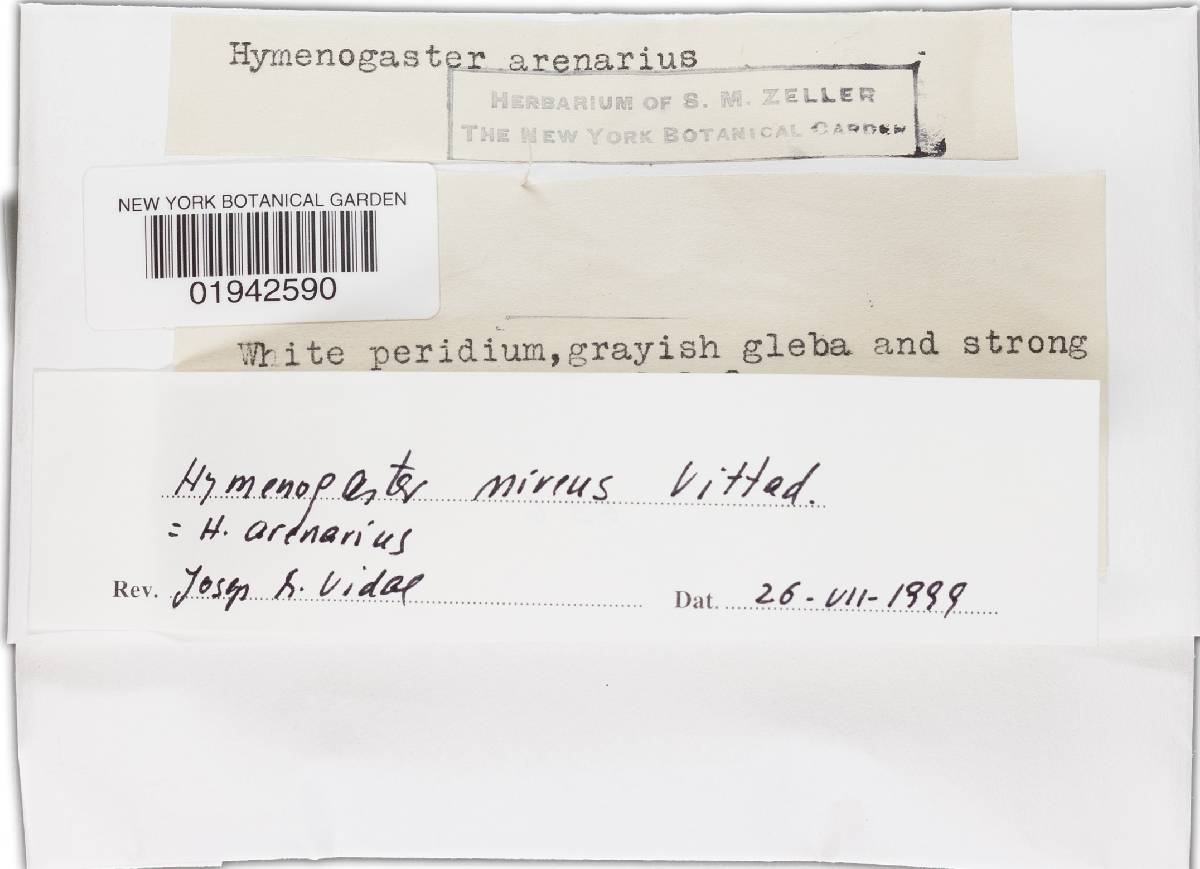 Hymenogaster arenarius
HERBARIUM OF S. M. ZELLER
THE NEW YORK BOTANICAL GARDEN
NEW YORK BOTANICAL GARDEN
01942590
White peridium,grayish gleba and strong
Hymenogaster niveus Vittad.
= H. arenarius
Rev. Josep M. Vidal
Dat. 26-VII-1999